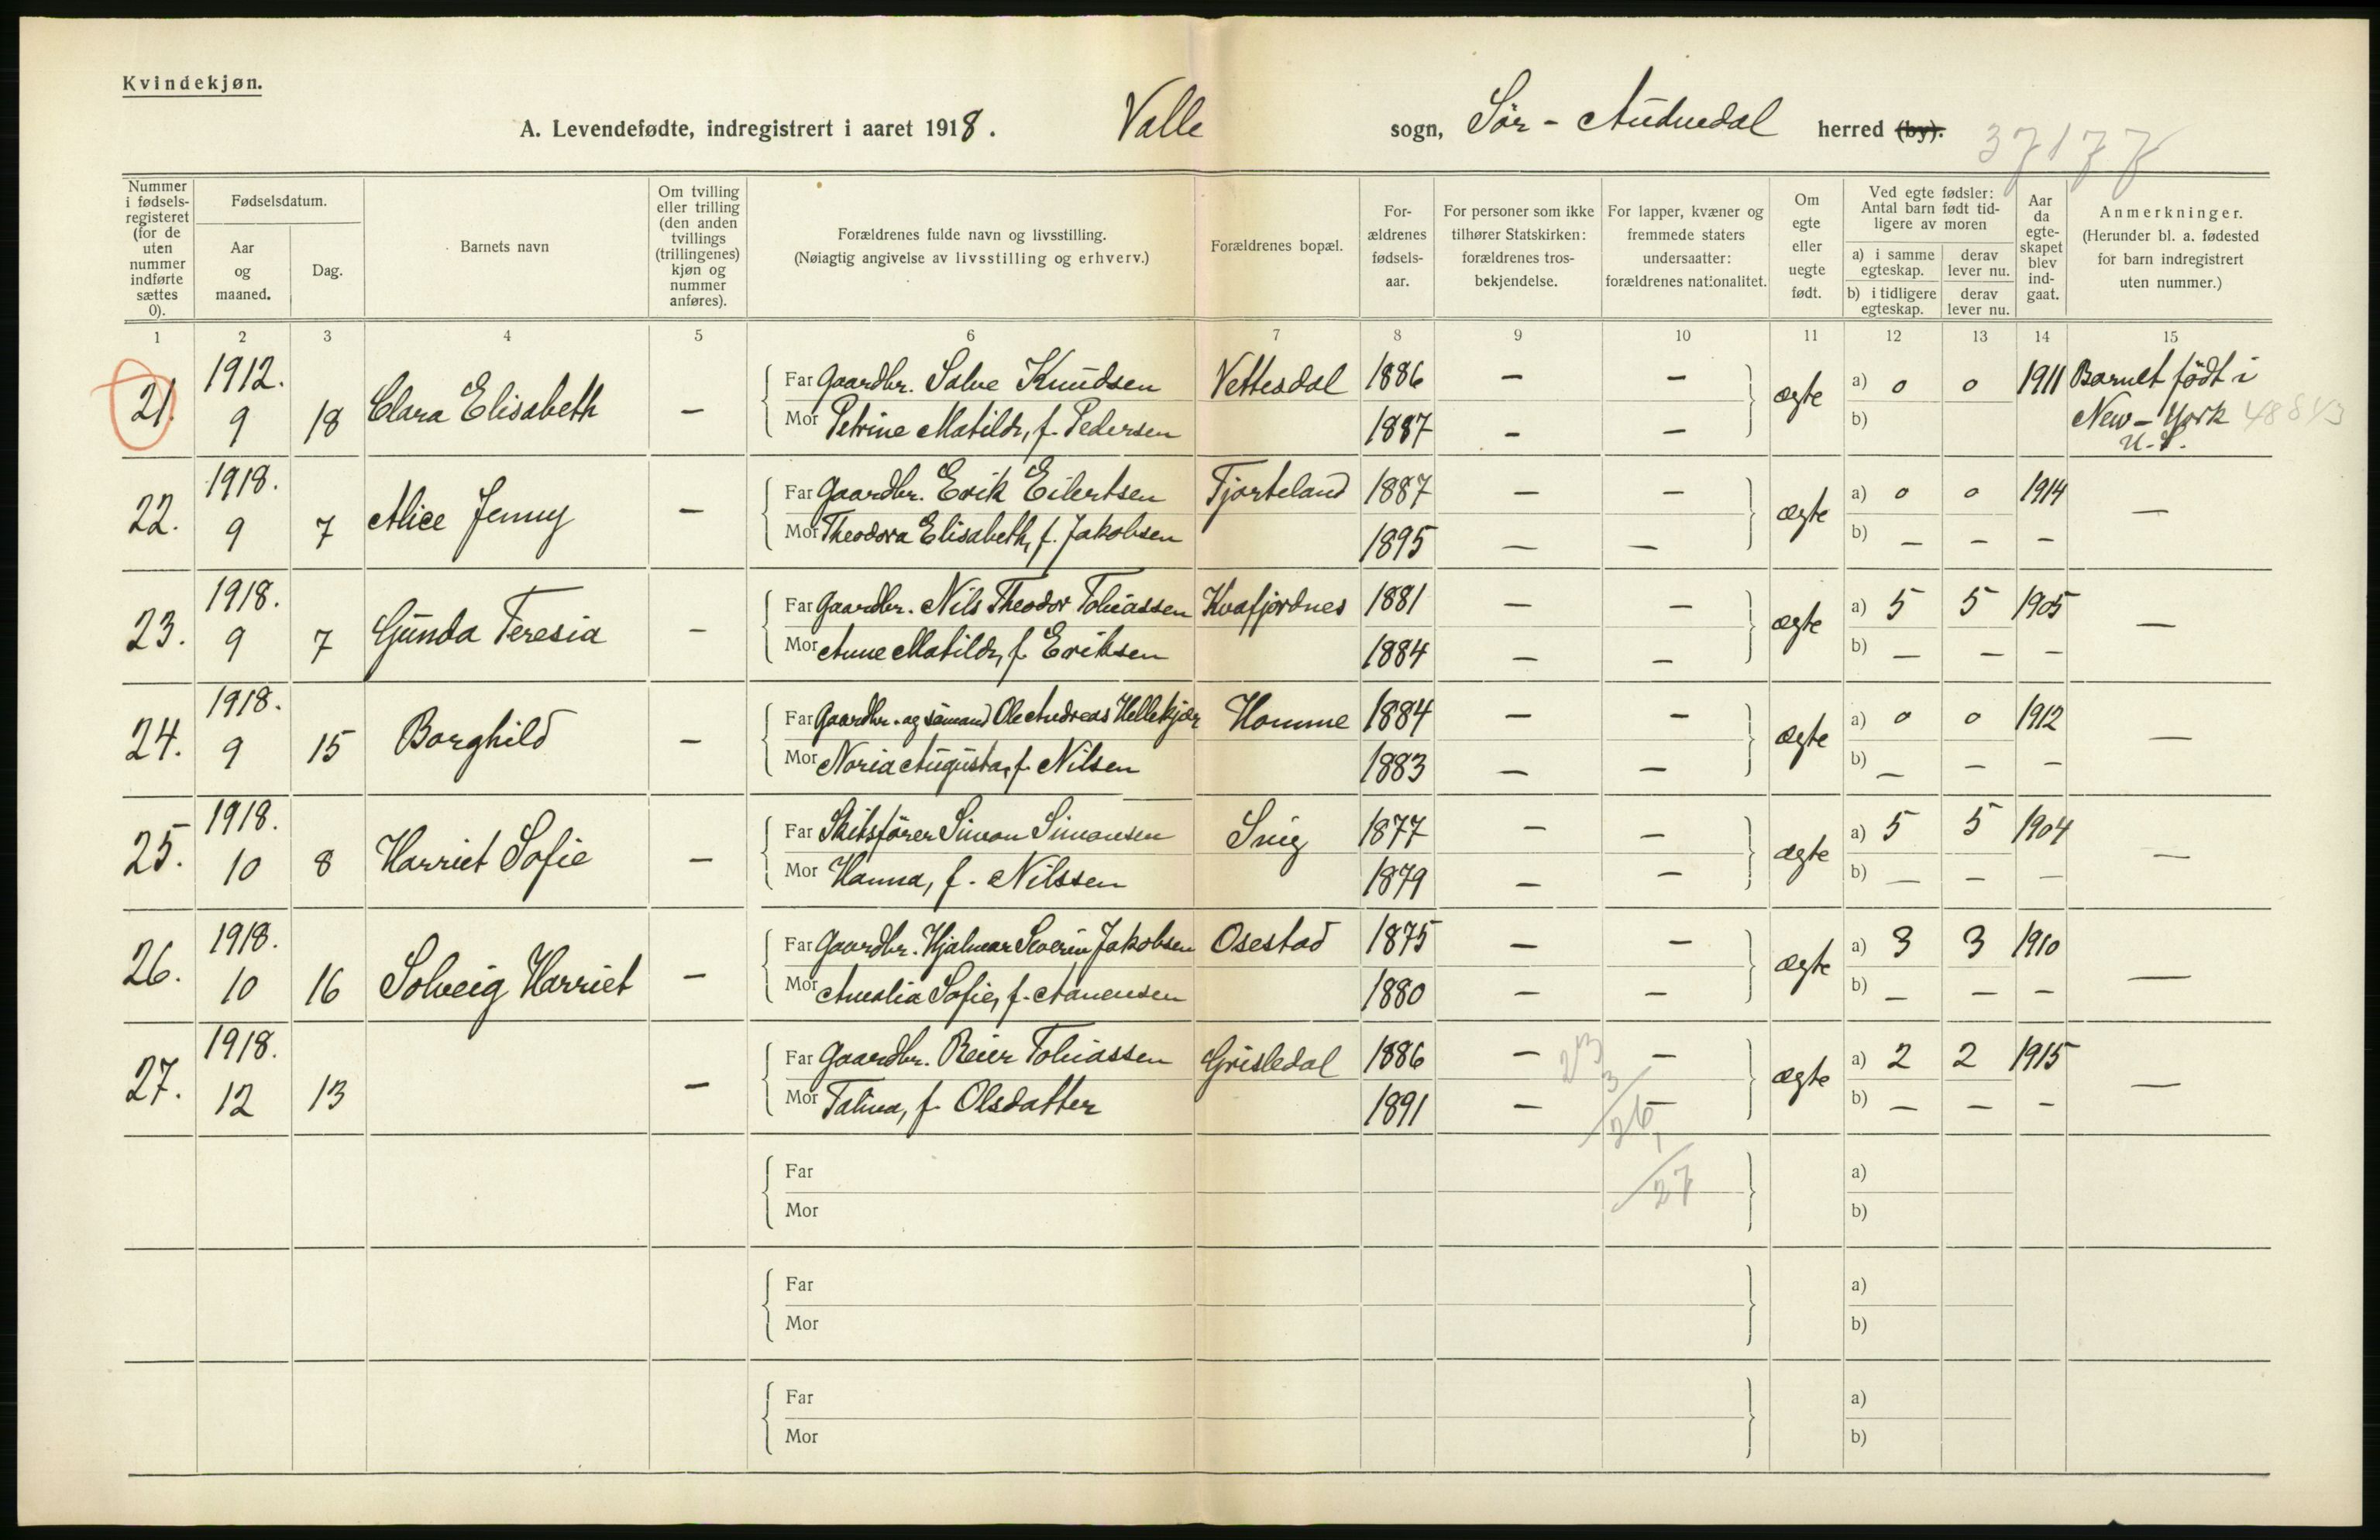 Kvindekjøn.
A. Levendefødte, indregistrert i aaret 1918. Valle sogn, Sör - Audnedal herred (by).
37177
Nummer i fødsels-registeret (for de uten nummer indførte sættes 0).
Fødselsdatum.
Aar og maaned.
Dag.
Barnets navn
Om tvilling eller trilling (den anden tvillings (trillingenes) kjøn og nummer anføres).
Forældrenes fulde navn og livsstilling.
(Nøiagtig angivelse av livsstilling og erhverv.)
Forældrenes bopæl.
For-ældrenes fødsels-aar.
For personer som ikke tilhører Statskirken: forældrenes tros-bekjendelse.
For lapper, kvæner og fremmede staters undersaatter: forældrenes nationalitet.
Om egte eller uegte født.
Ved egte fødsler: Antal barn født tid-ligere av moren
a) i samme egteskap. derav lever nu.
b) i tidligere egteskap. derav lever nu.
Aar da egte-skapet blev ind-gaat.
Anmerkninger.
(Herunder bl. a. fødested for barn indregistrert uten nummer.)
1 2 3 4 5 6 7 8 9 10 11 12 13 14 15
21. 1912. 9 18 Clara Elisabeth — Far Gaardbr. Salve Knudsen Vettesdal 1886 — — ægte a) 0 0 1911 Barnet født i
Mor Petrine Matilde, f. Pedersen 1887 — — b) New-York 48813
U.S.
22. 1918. 9 7 Alice Jenny — Far Gaardbr. Erik Eilertsen Tjorteland 1887 — — ægte a) 0 0 1914 —
Mor Theodora Elisabeth, f. Jakobsen 1895 — — b) — — —
23. 1918. 9 7 Gunda Teresia — Far Gaardbr. Nils Theodor Tobiassen Kvafjordnes 1881 — — ægte a) 5 5 1905 —
Mor Anne Matilde, f. Eriksen 1884 — — b) — — —
24. 1918. 9 15 Borghild — Far Gaardbr. og sömand Ole Andreas Hellekjær Homme 1884 — — ægte a) 0 0 1912 —
Mor Noria Augusta, f. Nilsen 1883 — — b) — — —
25. 1918. 10 8 Harriet Sofie — Far Skibsförer Simon Simonsen Snig 1877 — — ægte a) 5 5 1904 —
Mor Hanna, f. Nilssen 1879 — — b) — — —
26. 1918. 10 16 Solveig Harriet — Far Gaardbr. Hjalmar Severin Jakobsen Osestad 1875 — — ægte a) 3 3 1910 —
Mor Amalia Sofie, f. Aanensen 1880 — — b) — — —
27. 1918. 12 13 — Far Gaardbr. Reier Tobiassen Grisledal 1886 — — ægte a) 2 2 1915 —
Mor Talina, f. Olsdatter 1891 — — b) — — —
23
3
26
1
27
Far a)
Mor b)
Far a)
Mor b)
Far a)
Mor b)